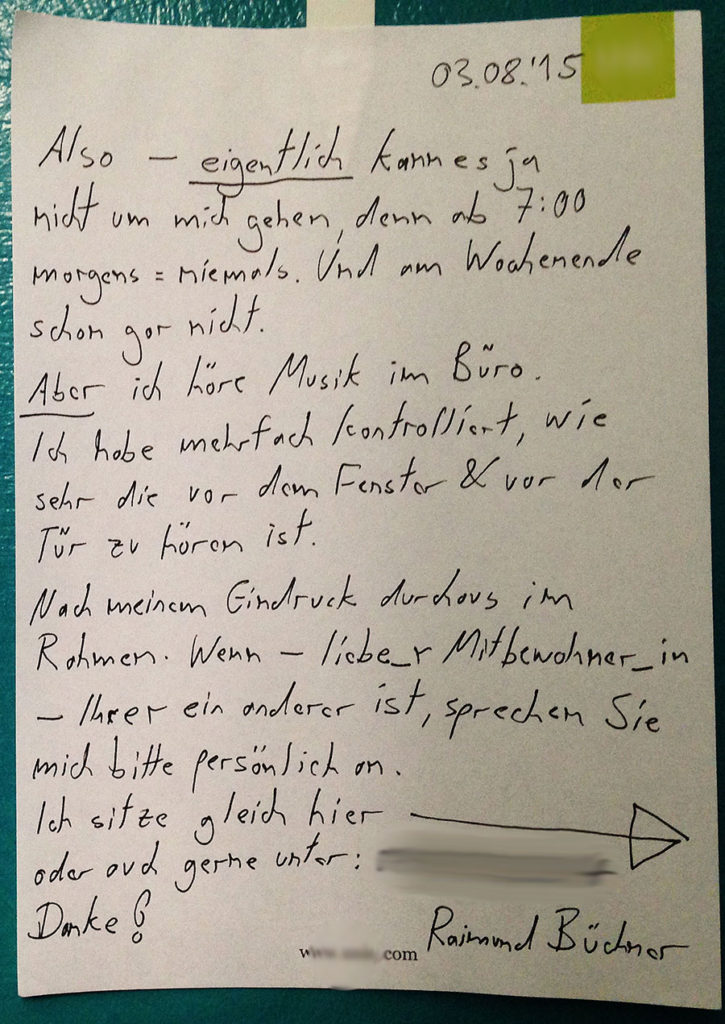 03.08.'15
Also – eigentlich kann es ja
nicht um mich gehen, denn ab 7:00
morgens = niemals. Und am Wochenende
schon gar nicht.
Aber ich höre Musik im Büro.
Ich habe mehrfach kontrolliert, wie
sehr die vor dem Fenster & vor der
Tür zu hören ist.
Nach meinem Eindruck durchaus im
Rahmen. Wenn – liebe_r Mitbewohner_in
– Ihrer ein anderer ist, sprechen Sie
mich bitte persönlich an.
Ich sitze gleich hier
oder auch gerne unter:
Danke!
Raimund Büchner
.com